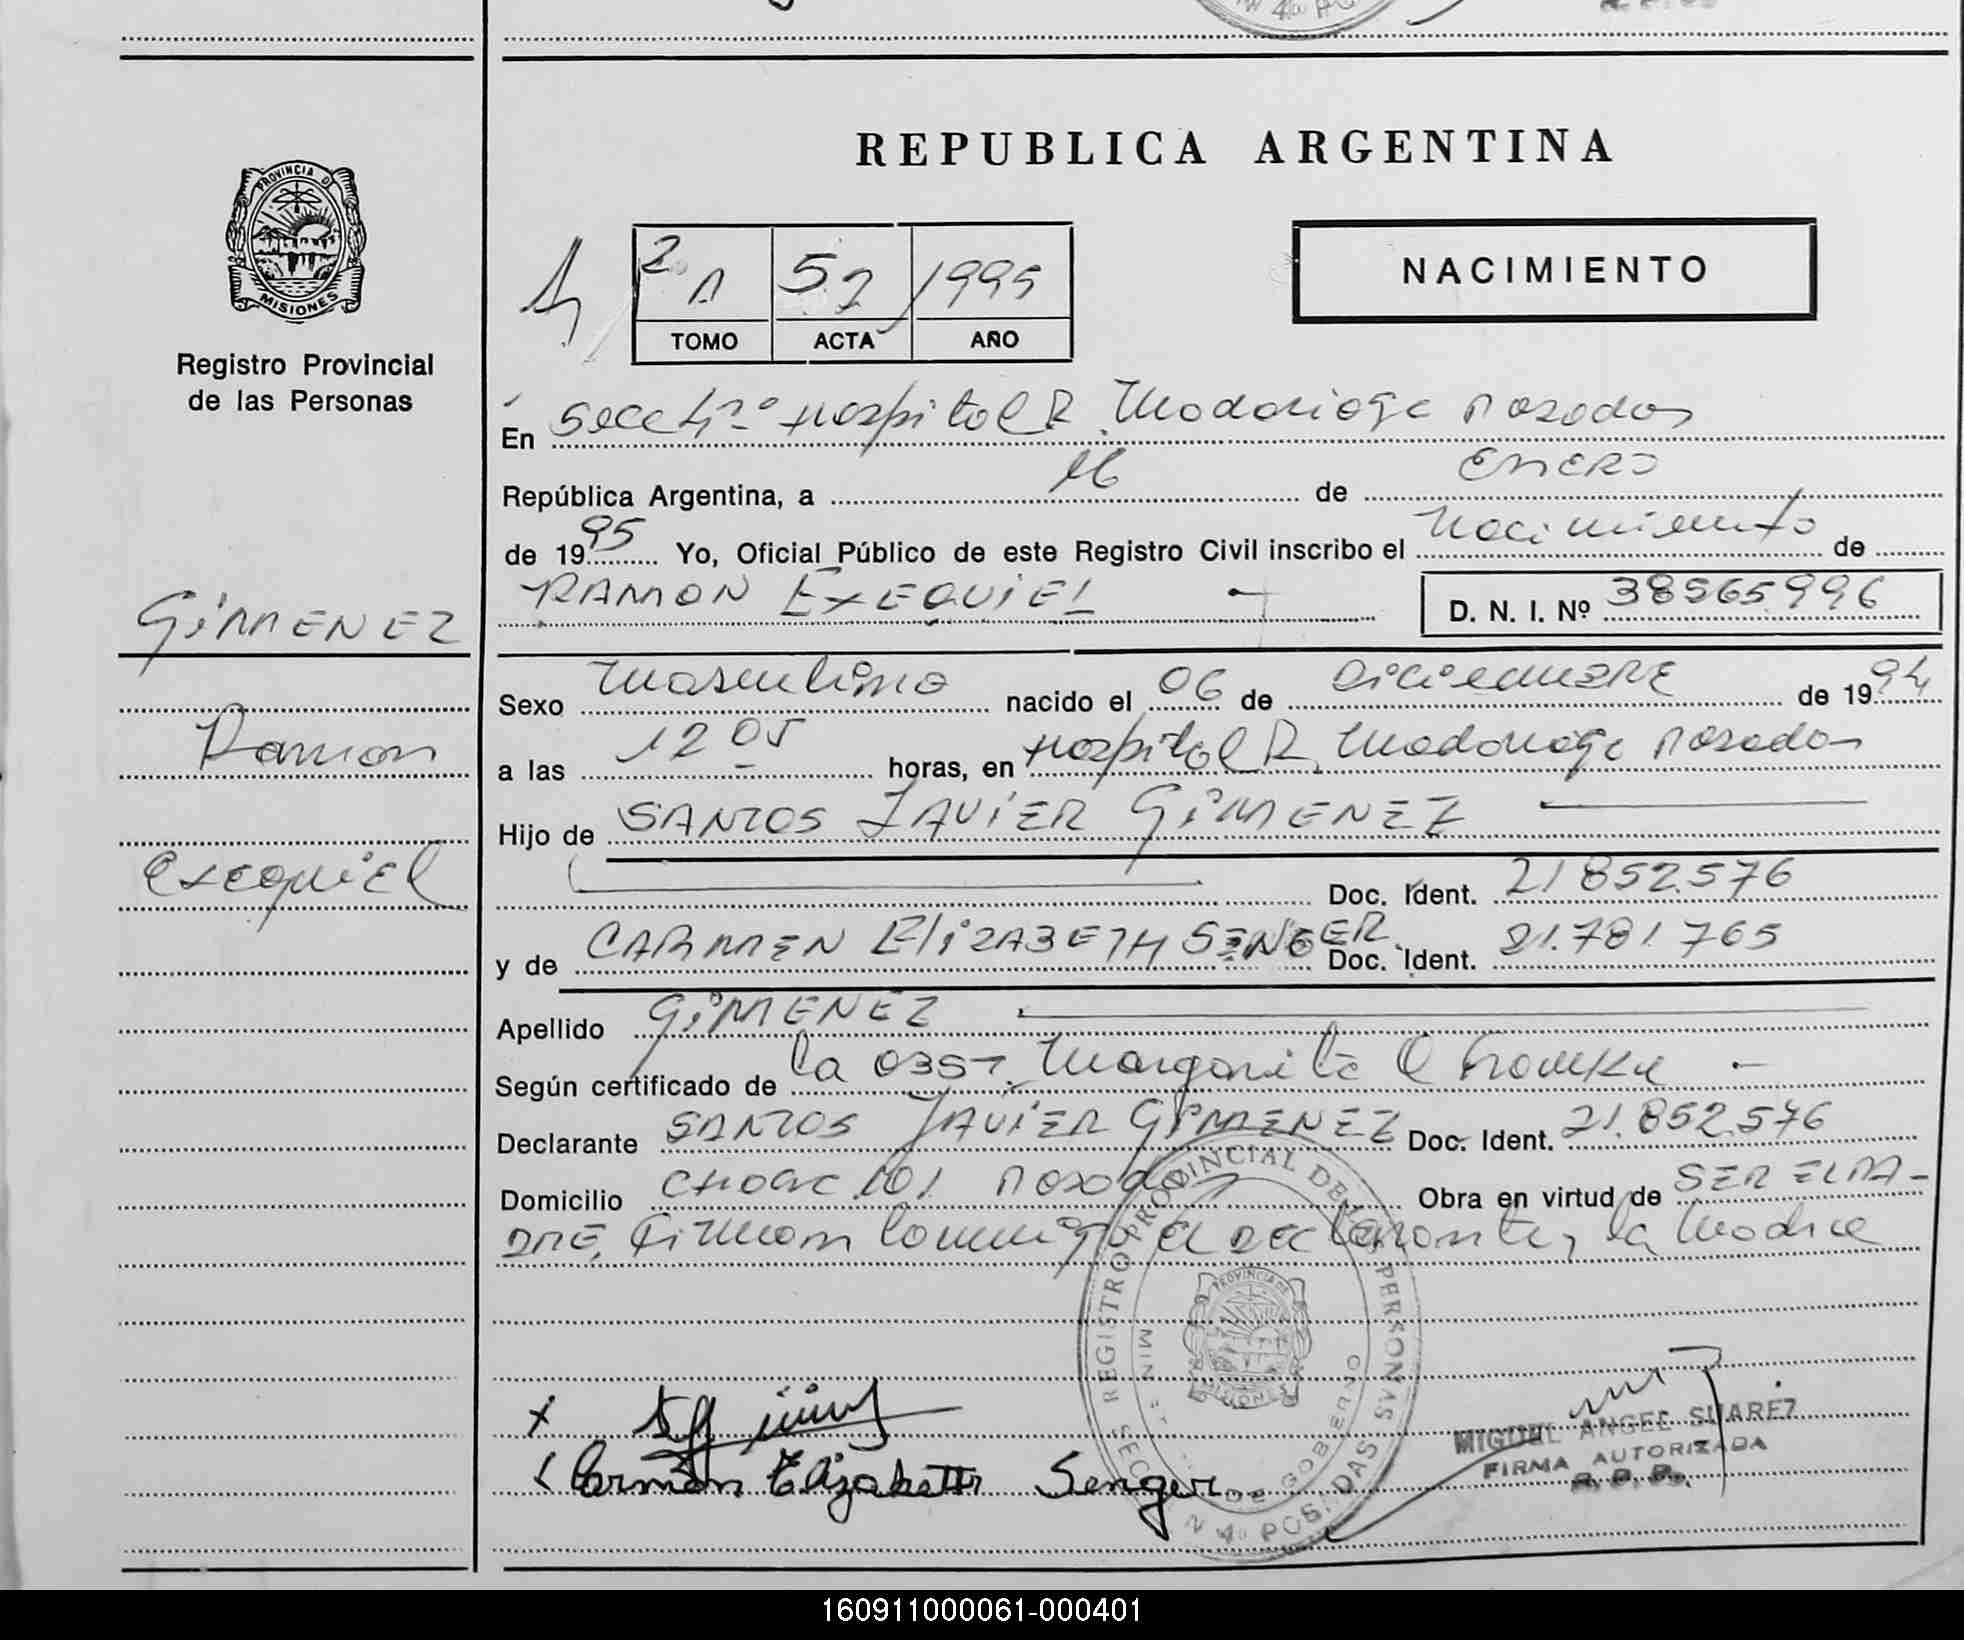 REPUBLICA ARGENTINA
PROVINCIA DE
MISIONES
Registro Provincial
de las Personas
2º A 52 1995
TOMO ACTA AÑO
NACIMIENTO
En Secc 4ª Hospital R. Madariaga Posadas
República Argentina, a 16 de ENERO
de 1995 Yo, Oficial Público de este Registro Civil inscribo el Nacimiento de
RAMON EXEQUIEL D. N. I. Nº 38565996
GIMENEZ
Ramon
Exequiel
Sexo Masculino nacido el 06 de DICIEMBRE de 1994
a las 12 05 horas, en Hospital R. Madariaga Posadas
Hijo de SANTOS JAVIER GIMENEZ
Doc. Ident. 21852.576
y de CARMEN ELIZABETH SENGER Doc. Ident. 21.781.765
Apellido GIMENEZ
Según certificado de la OBST. Margarita
Declarante SANTOS JAVIER GIMENEZ Doc. Ident. 21.852.576
Domicilio 101 Posadas Obra en virtud de SER EL PA-
DRE, Firman conmigo el declarante y la Madre
REGISTRO PROVINCIAL DE LAS PERSONAS
MINISTERIO DE GOBIERNO
PROVINCIA DE
MISIONES
SECCION 4ª POSADAS
Carmen Elizabeth Senger
MIGUEL ANGEL SUAREZ
FIRMA AUTORIZADA
R. P. P.
160911000061-000401